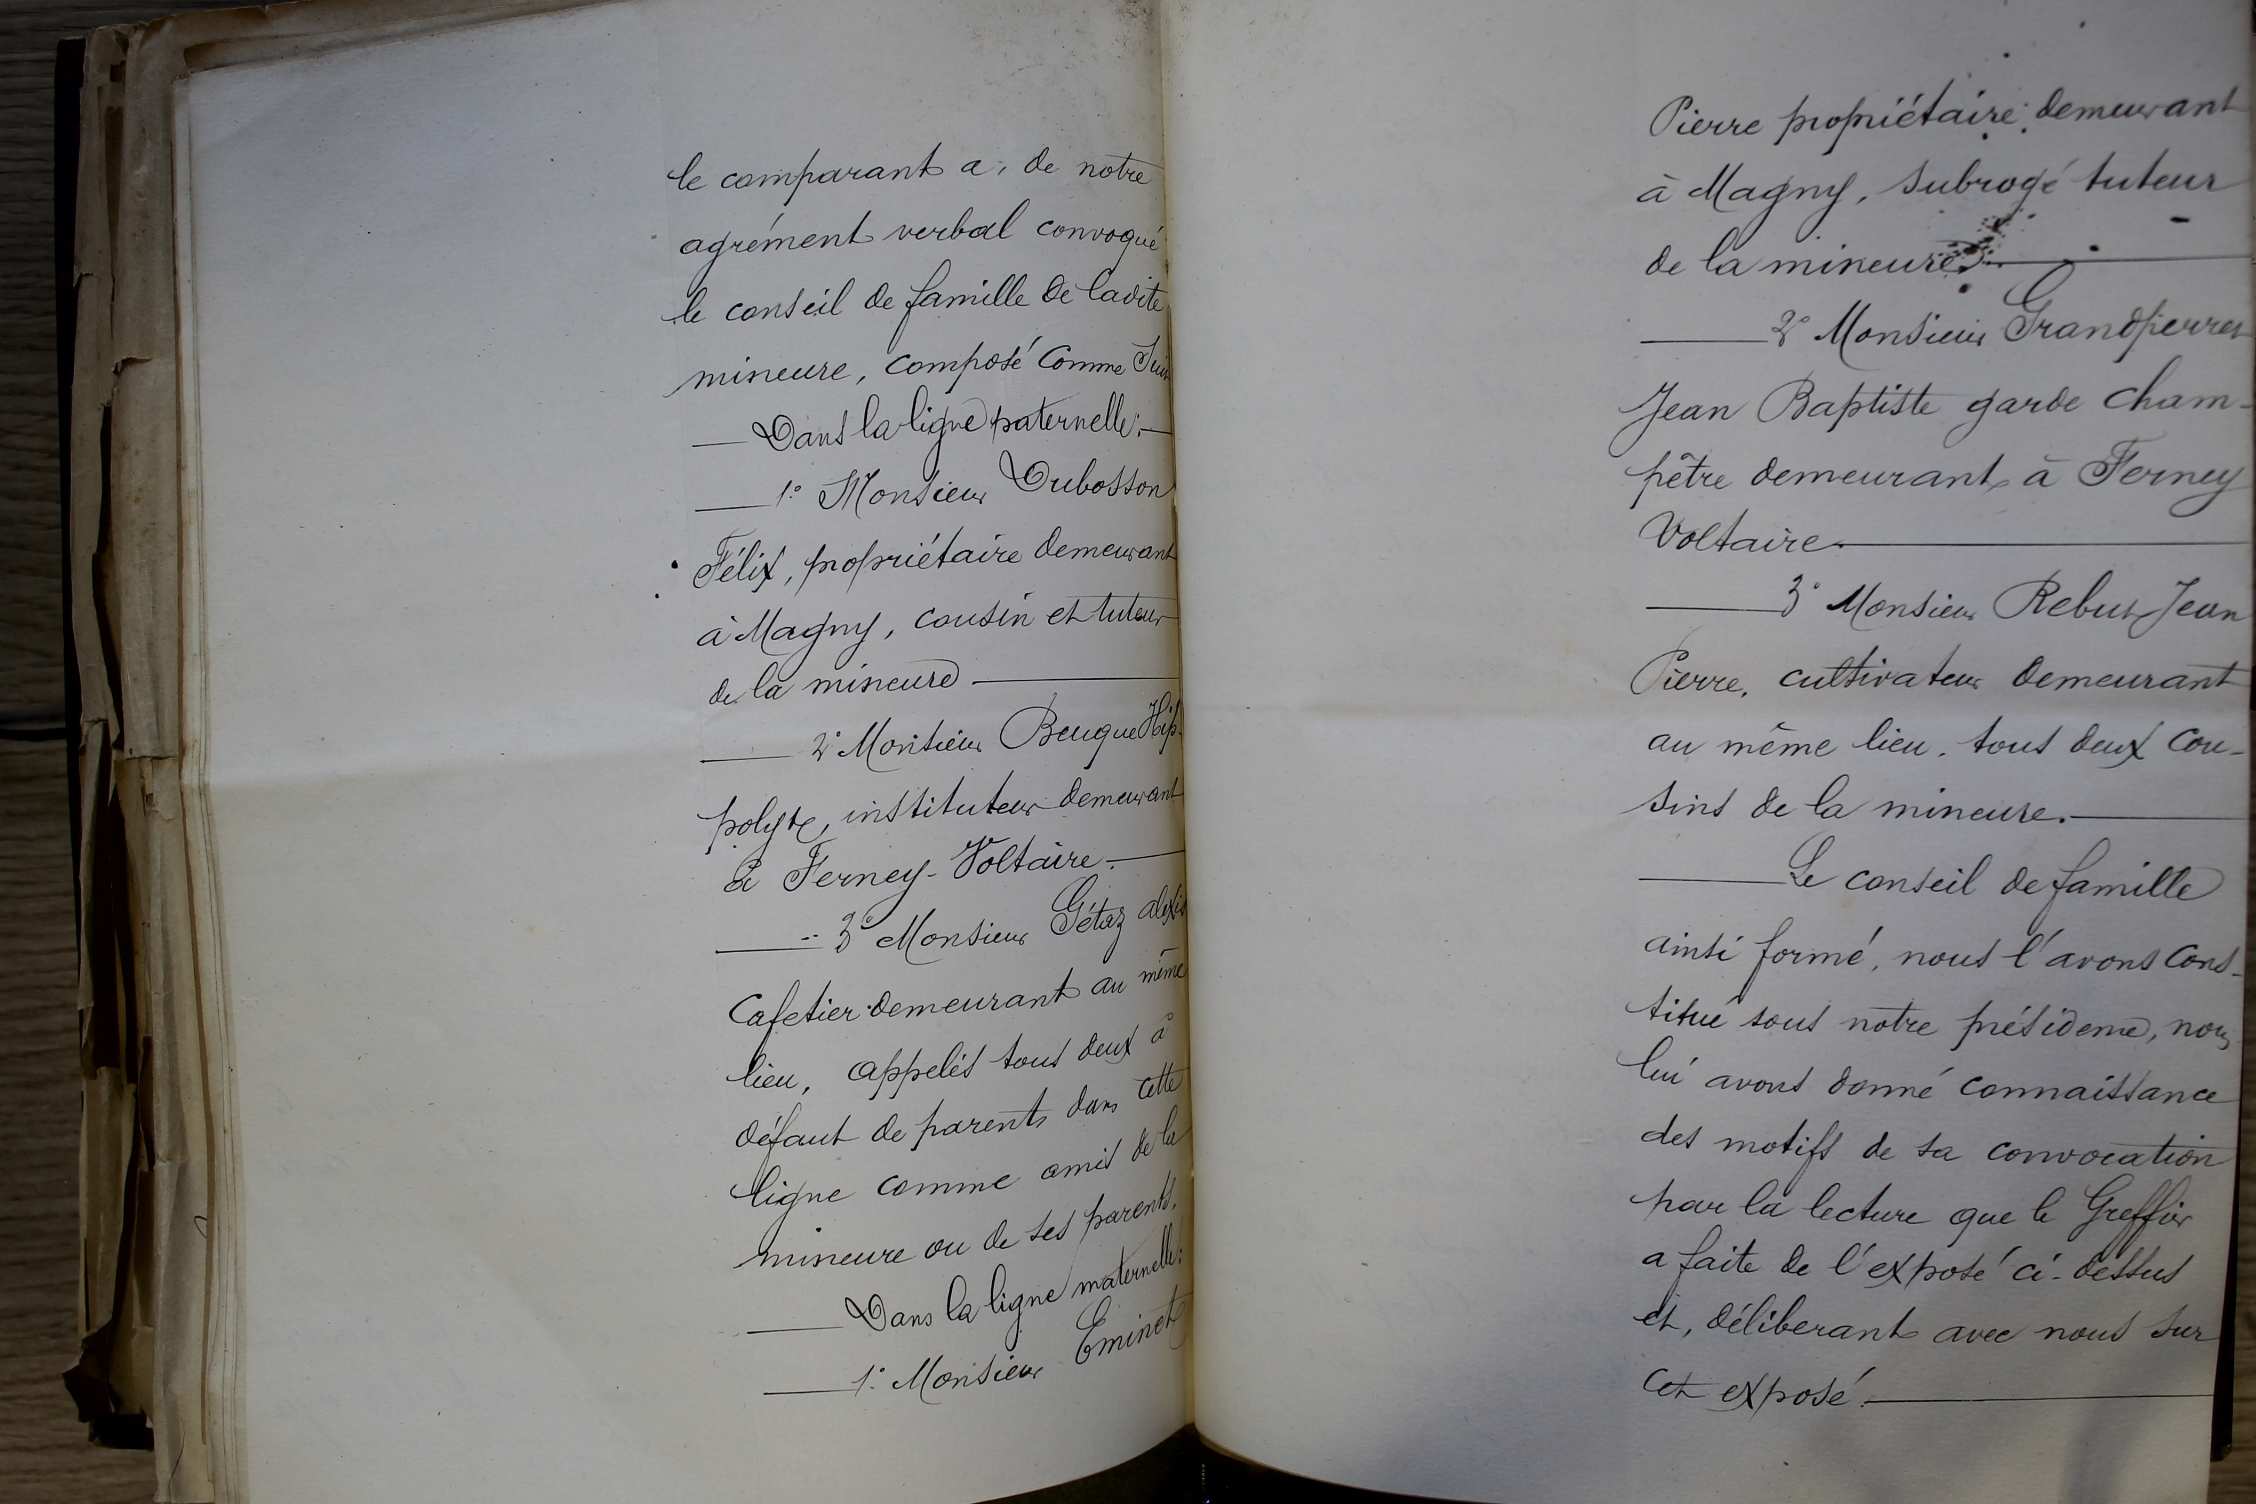 le comparant a, de notre
agrément verbal convoqué
le conseil de famille de ladite
mineure, composé comme suit
Dans la ligne paternelle:
1° Monsieur Dubosson
Félix, propriétaire demeurant
à Magny, cousin et tuteur
de la mineure
2° Monsieur Beugue Hip-
polyte, instituteur demeurant
à Ferney-Voltaire.
3° Monsieur Gétaz alexis
Cafetier demeurant au même
lieu, appelés tous deux à
défaut de parents dans cette
ligne comme amis de la
mineure ou de ses parents.
Dans la ligne maternelle:
1° Monsieur Eminet
Pierre propriétaire demeurant
à Magny, subrogé tuteur
de la mineure
2° Monsieur Grandpierre
Jean Baptiste garde cham-
pêtre demeurant à Ferney
Voltaire.
3° Monsieur Rebut Jean
Pierre, cultivateur demeurant
au même lieu, tous deux cou-
sins de la mineure.
Le conseil de famille
ainsi formé, nous l'avons cons-
titué sous notre présidence, nous
lui avons donné connaissance
des motifs de sa convocation
par la lecture que le Greffier
a faite de l'exposé ci-dessus
et, déliberant avec nous sur
cet exposé.